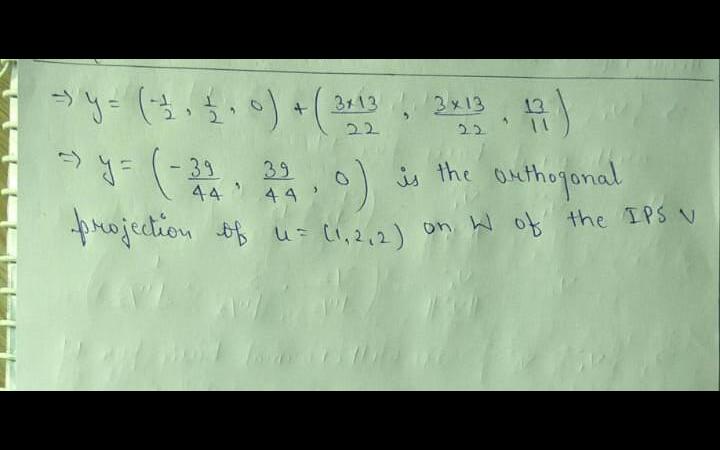 ⇒ y = (-1/2, 1/2, 0) + (3×13/22, 3×13/22, 13/11)
⇒ y = (-39/44, 39/44, 0) is the orthogonal
projection of u = (1, 2, 2) on W of the IPS V